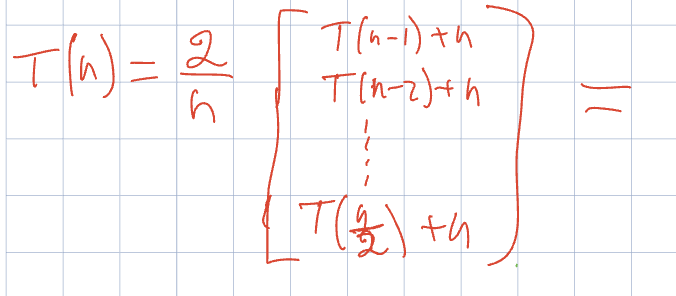 T(n) = 2/n [ T(n-1)+n
T(n-2)+n
⋮
T(n/2)+n ] =